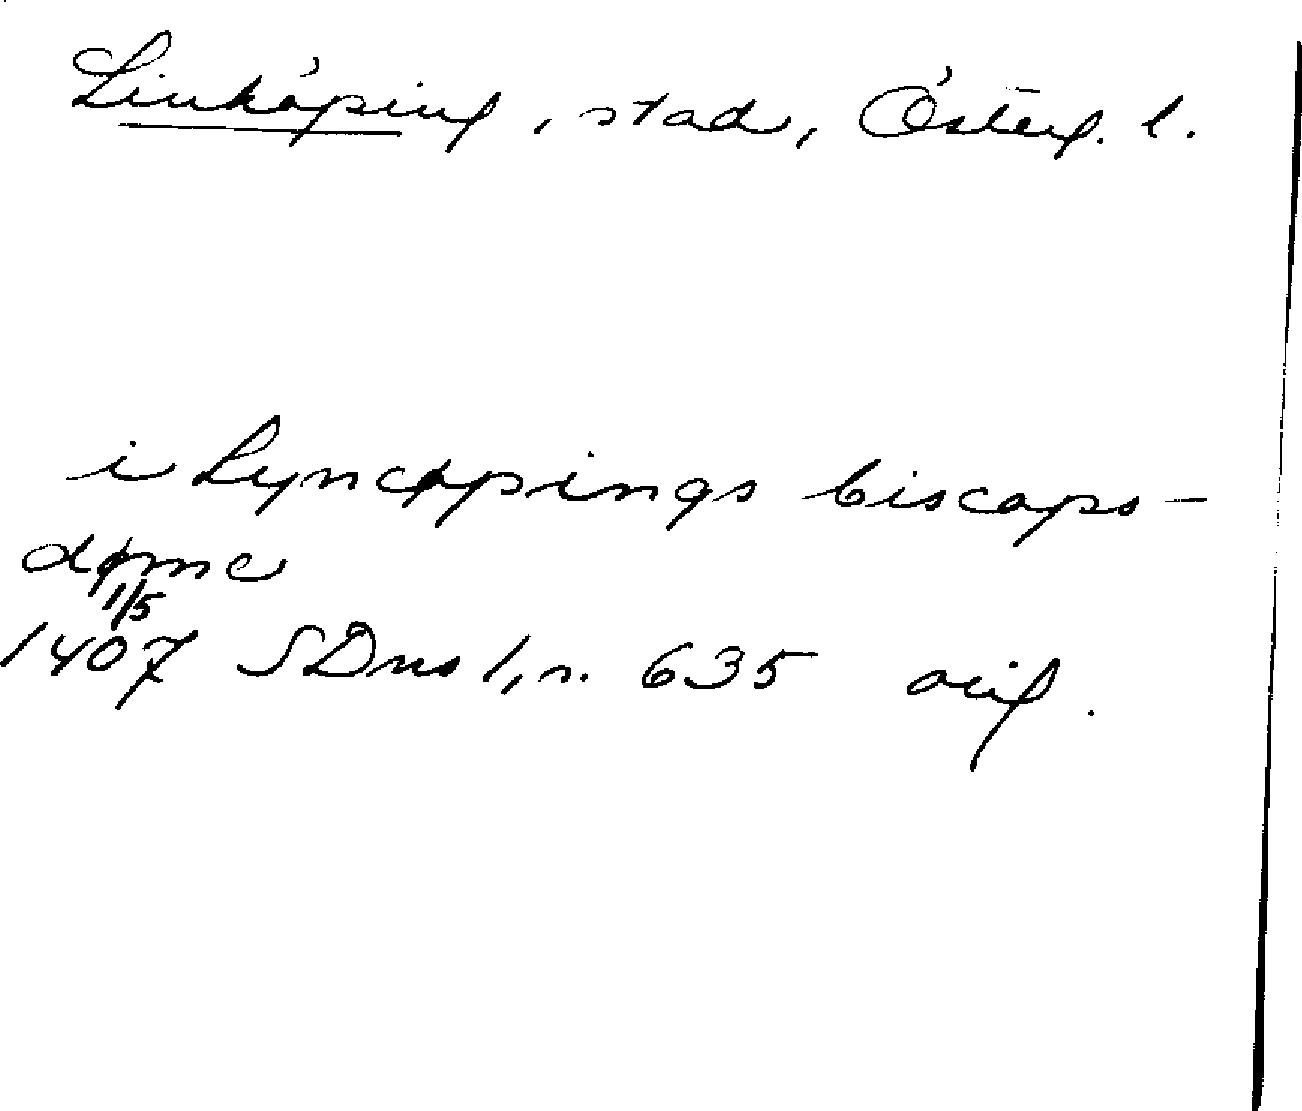 Linköping, stad, Österg. l.
i Lyncøpings biscops-
døme
1/5
1407 SDns 1, n. 635 orig.